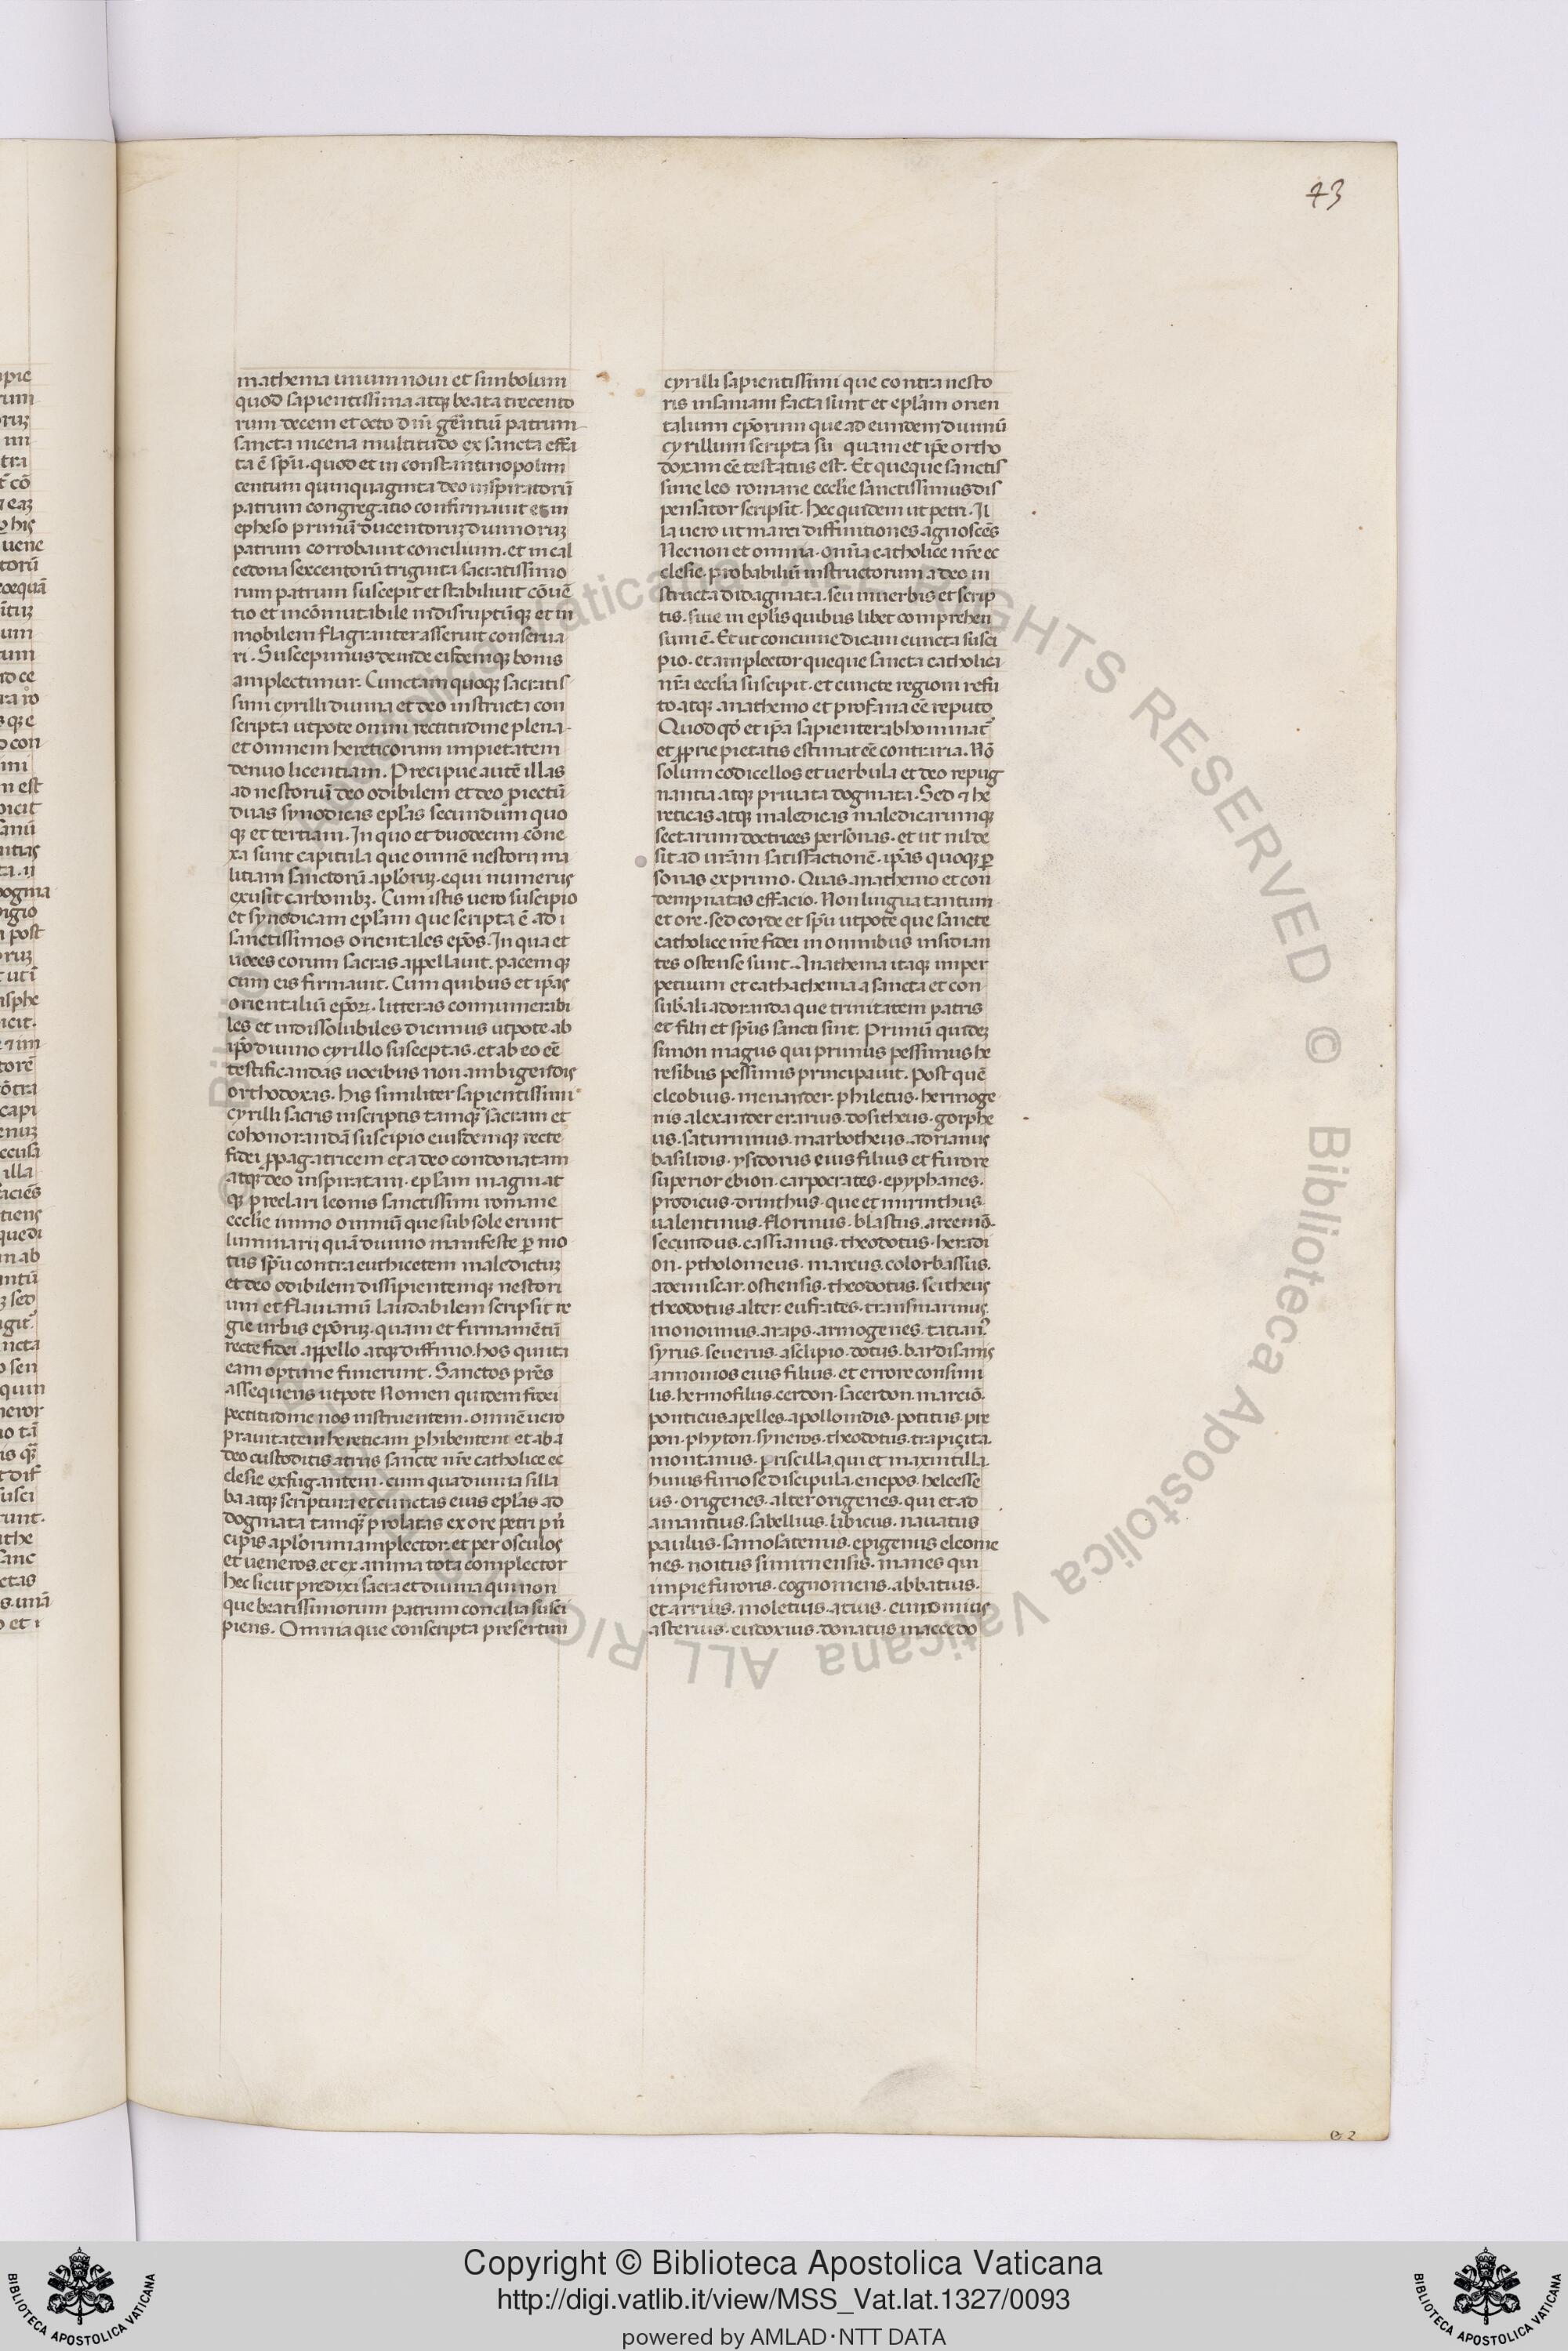 43
mathema unum noui et simbolum
quod sapientissima atq; beata trecento
rum decem et octo
patrum
sancta nicena multitudo ex sancta effla
ta ē spū. quod et in constantinopolim
centum quinquaginta deo inspiratorū
patrum congregatio confirmauit et in
epheso primū ducentoruꝫ duumoruꝫ
patrum corrobauit concilium. et in cal
cedona sexcentorū triginta sacratissimo
rum patrum suscepit et stabiliuit cōuē
tio et incōmutabile indisruptūq; et in
mobilem flagranter asseruit conserua
ri. Suscepimus deinde eisdemq; bonis
amplectimur. Cunctam quoq; sacratis
simi cyrilli diuina et deo instructa con
scripta utpote omni rectitudine plena.
et omnem hereticorum impietatem
denuo licentiam. Precipue autē illas
ad nestoriū deo odibilem et deo piectū
duas synodicas ep̄las secundum quo
q; et tertiam. In quo et duodecim cōne
xa sunt capitula que omnē nestorij ma
litiam sanctorū ap̄loruꝫ. equi numerus
exusit carbonibꝫ. Cum istis uero suscipio
et synodicam ep̄lam que scripta ē ad i
sanctissimos orientales ep̄os. In qua et
uoces eorum sacras appellauit. pacem q;
cum eis firmauit. Cum quibus et ip̄as
orientaliū ep̄oꝝ. litteras connumerabi
les et indissolubiles dicimus utpote ab
ip̄o diuino cyrillo susceptas. et ab eo eē
testificandas uocibus non ambigendis
orthodoxas. his similiter sapientissimi
cyrilli sacris inscriptis tamq̄ sacram et
cohonorandā suscipio eiusdemq; recte
fidei ꝓpagatricem et a deo condonatam
atq; deo inspiratam. ep̄lam magni at
q; preclari leonis sanctissimi romane
eccl̄ie immo omniū que sub sole erunt
luminarij quā diuino manifeste ꝑ mo
tus sp̄u contra euthicetem maledictuꝫ
et deo odibilem dissipientemq; nestori
um et flauianū laudabilem scripsit re
gie urbis ep̄oruꝫ. quam et firmamētū
recte fidei appello atq; diffinio. hos quinta
eam optime funerunt. Sanctos pr̄es
assequens utpote Nomen quidem fidei
pectitudine nos instruentem. omnē uero
prauitatem hereticam ꝓhibentem et ab a
deo custoditis atriis sancte nr̄e catholice ec
clesie exfugantem. cum qua diuina silla
ba atq; scriptura et cunctas eius ep̄las ad
dogmata tamq̄ prolatas ex ore petri pn̄
cipis ap̄lorum amplector. et per osculos
et ueneros. et ex anima tota complector
hec sicut predixi sacra et diuina qui non
que beatissimorum patrum concilia susci
piens. Omnia que conscripta presertim
cyrilli sapientissimi que contra nesto
ris insaniam facta sunt et ep̄lam orien
talium ep̄orum que ad eundem diuinū
cyrillum scripta su quam et ip̄e ortho
doxam eē testatus est. Et queque sanctis
sime leo romane eccl̄ie sanctissimus dis
pensator scripsit. hec quidem ut petri. Il
la uero ut marci diffinitiones agnoscēs
Necnon et omnia. omīa catholice nr̄e ec
clesie. probabiliū instructorum a deo in
structa didagmata. seu in uerbis et scrip
tis. siue in ep̄lis quibus libet comprehen
sum ē. Et ut concinne dicam cuncta susci
pio. et amplector queque sancta catholica
nr̄a eccl̄ia suscipit. et cuncte regioni refu
to atq; anathemo et profana eē reputo
Quod qd̓ et ip̄a sapienter abhominat̄
et ꝓprie pietatis estimat eē contraria. Nō
solum codicellos et uerbula et deo repug
nantia atq; priuata dogmata. Sed ⁊ he
reticas atq; maledicas maledicarumq;
sectarum doctrices personas. et ut nil de
sit ad ur̄am satisfactionē. ip̄as quoq; ꝑ
sonas exprimo. Quas anathemo et con
dempnatas effacio. Non lingua tantum
et ore. sed corde et sp̄u utpote que sancte
catholice nr̄e fidei in omnibus insidian
tes ostense sunt. Anathema itaq; imper
petuum et cathathema a sancta et con
sub̄ali adoranda que trinitatem patris
et filij et sp̄us sancti sint. Primū quideꝫ
simon magus qui primus pessimus he
resibus pessimis principauit. Post quē
cleobius. menander. philetus. hermoge
nis. alexander erarius. dositheus. gorphe
us. saturninus. marbotheus. adrianus
basilidis. ysidorus eius filius et furore
superior ebion. carpocrates. epyphanes.
prodicus. drinthus. que et mirinthus.
ualentinus. florinus. blastus. artemō.
secundus. cassianus. theodotus. heradi
on. ptholomeus. marcus. colorbassus.
ademiscar. ostiensis. theodotus. scitheus
theodotus alter. eufrates. transmarinus.
monoimus. araps. armogenes. tatian᷒
syrus. seuerus. asclipio. dotus. bardisams
armonios eius filius. et errore consimi
lis. hermofilus. cerdon. sacerdon. marciō.
ponticus. apelles. apollonidis. potitus. pre
pon. phyton. syneros. theodotus. trapiçita.
montanus. priscilla. qui et maximtilla.
huius furiose discipula. enepos. helcesse
us. origenes. alter origenes. qui et ad
amantius. sabellius. libicus. nauatus
paulus. samosatenus. epigenus cleome
nes. noitus simirnensis. manes qui
impie furoris. cognomens. abbatuis.
et arrius. moletius. atius. eunomius
asterius. eudoxius. donatus maccedo
e 2
Copyright © Biblioteca Apostolica Vaticana
http://digi.vatlib.it/view/MSS_Vat.lat.1327/0093
powered by AMLAD·NTT DATA